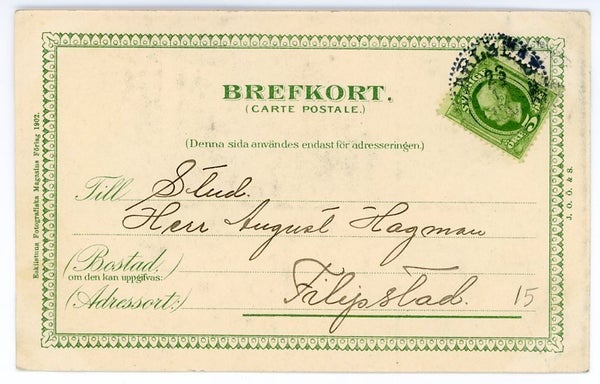 BREFKORT.
(CARTE POSTALE.)
(Denna sida användes endast för adresseringen.)
Till Stud.
Herr August Hagman
(Bostad,
om den kan uppgifvas:)
(Adressort:) Filipstad.
15
Eskilstuna Fotografiska Magasins Förlag 1902.
J. O. Ö. & S.
5